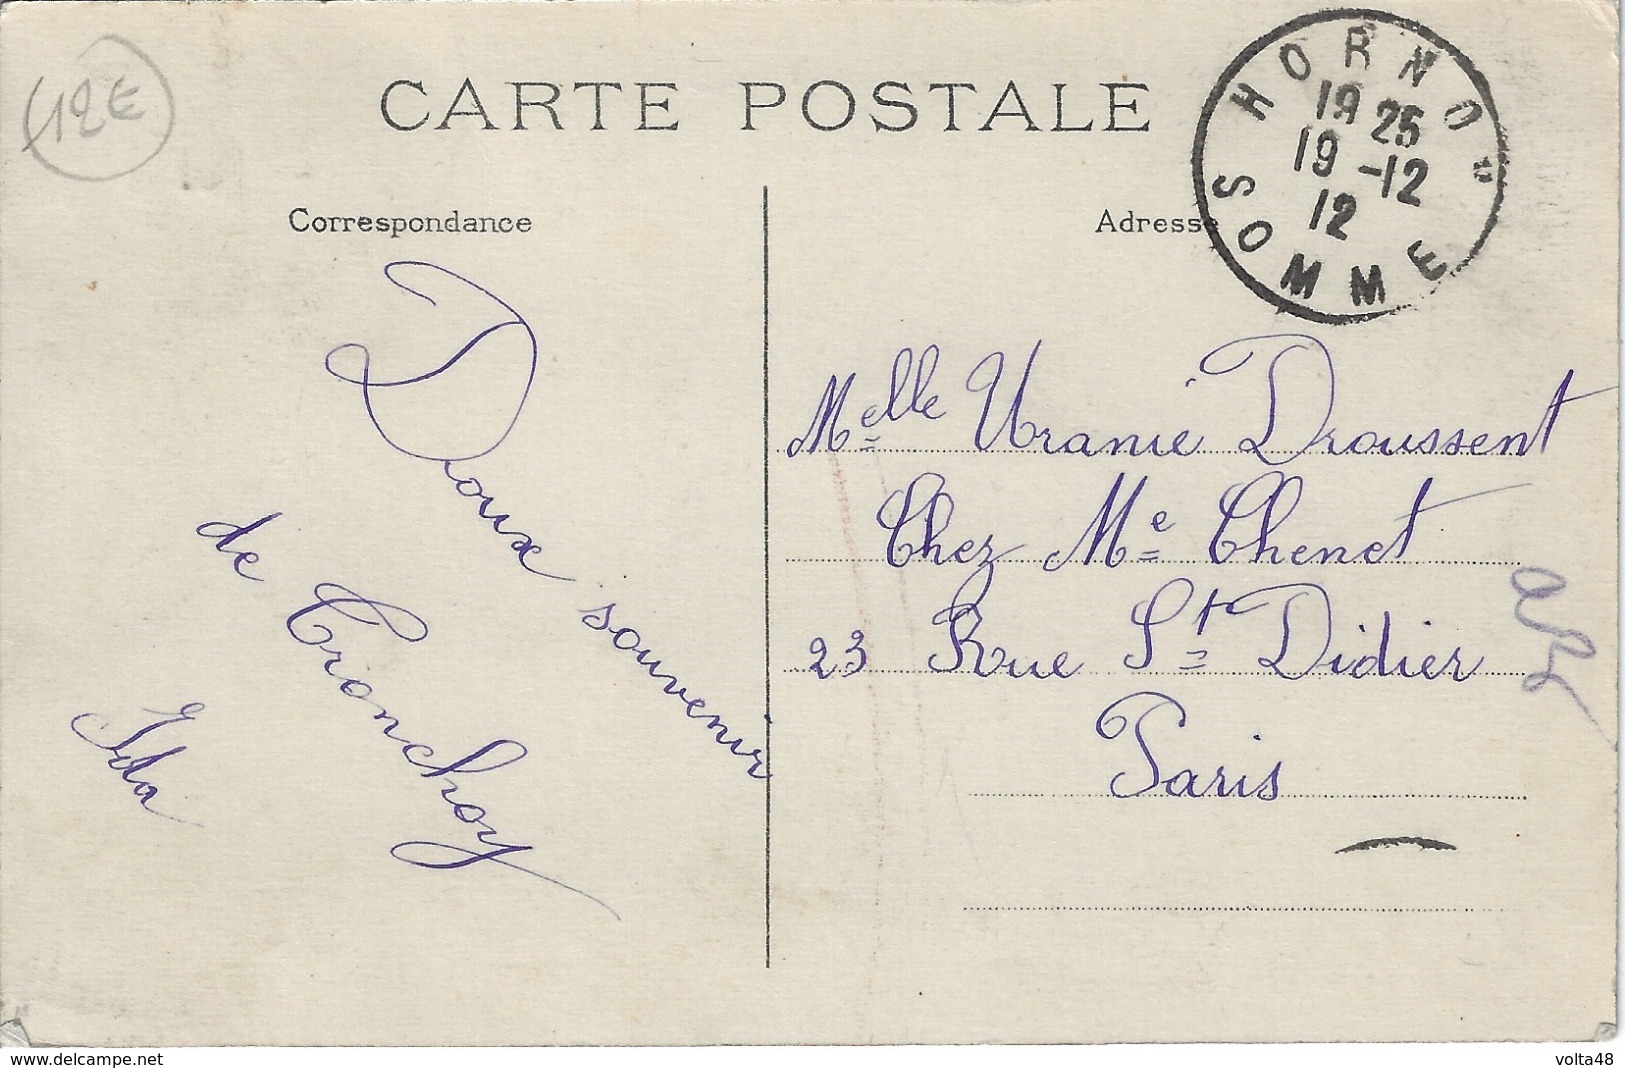 12E
CARTE POSTALE
HORNO*
19 25
19 -12
12
SOMME
Correspondance
Adresse
Doux souvenir
de Tronchoy
Ida
Melle Uranie Droussent
Chez Me Chenet
23 Rue St Didier
Paris
www.delcampe.net
volta48